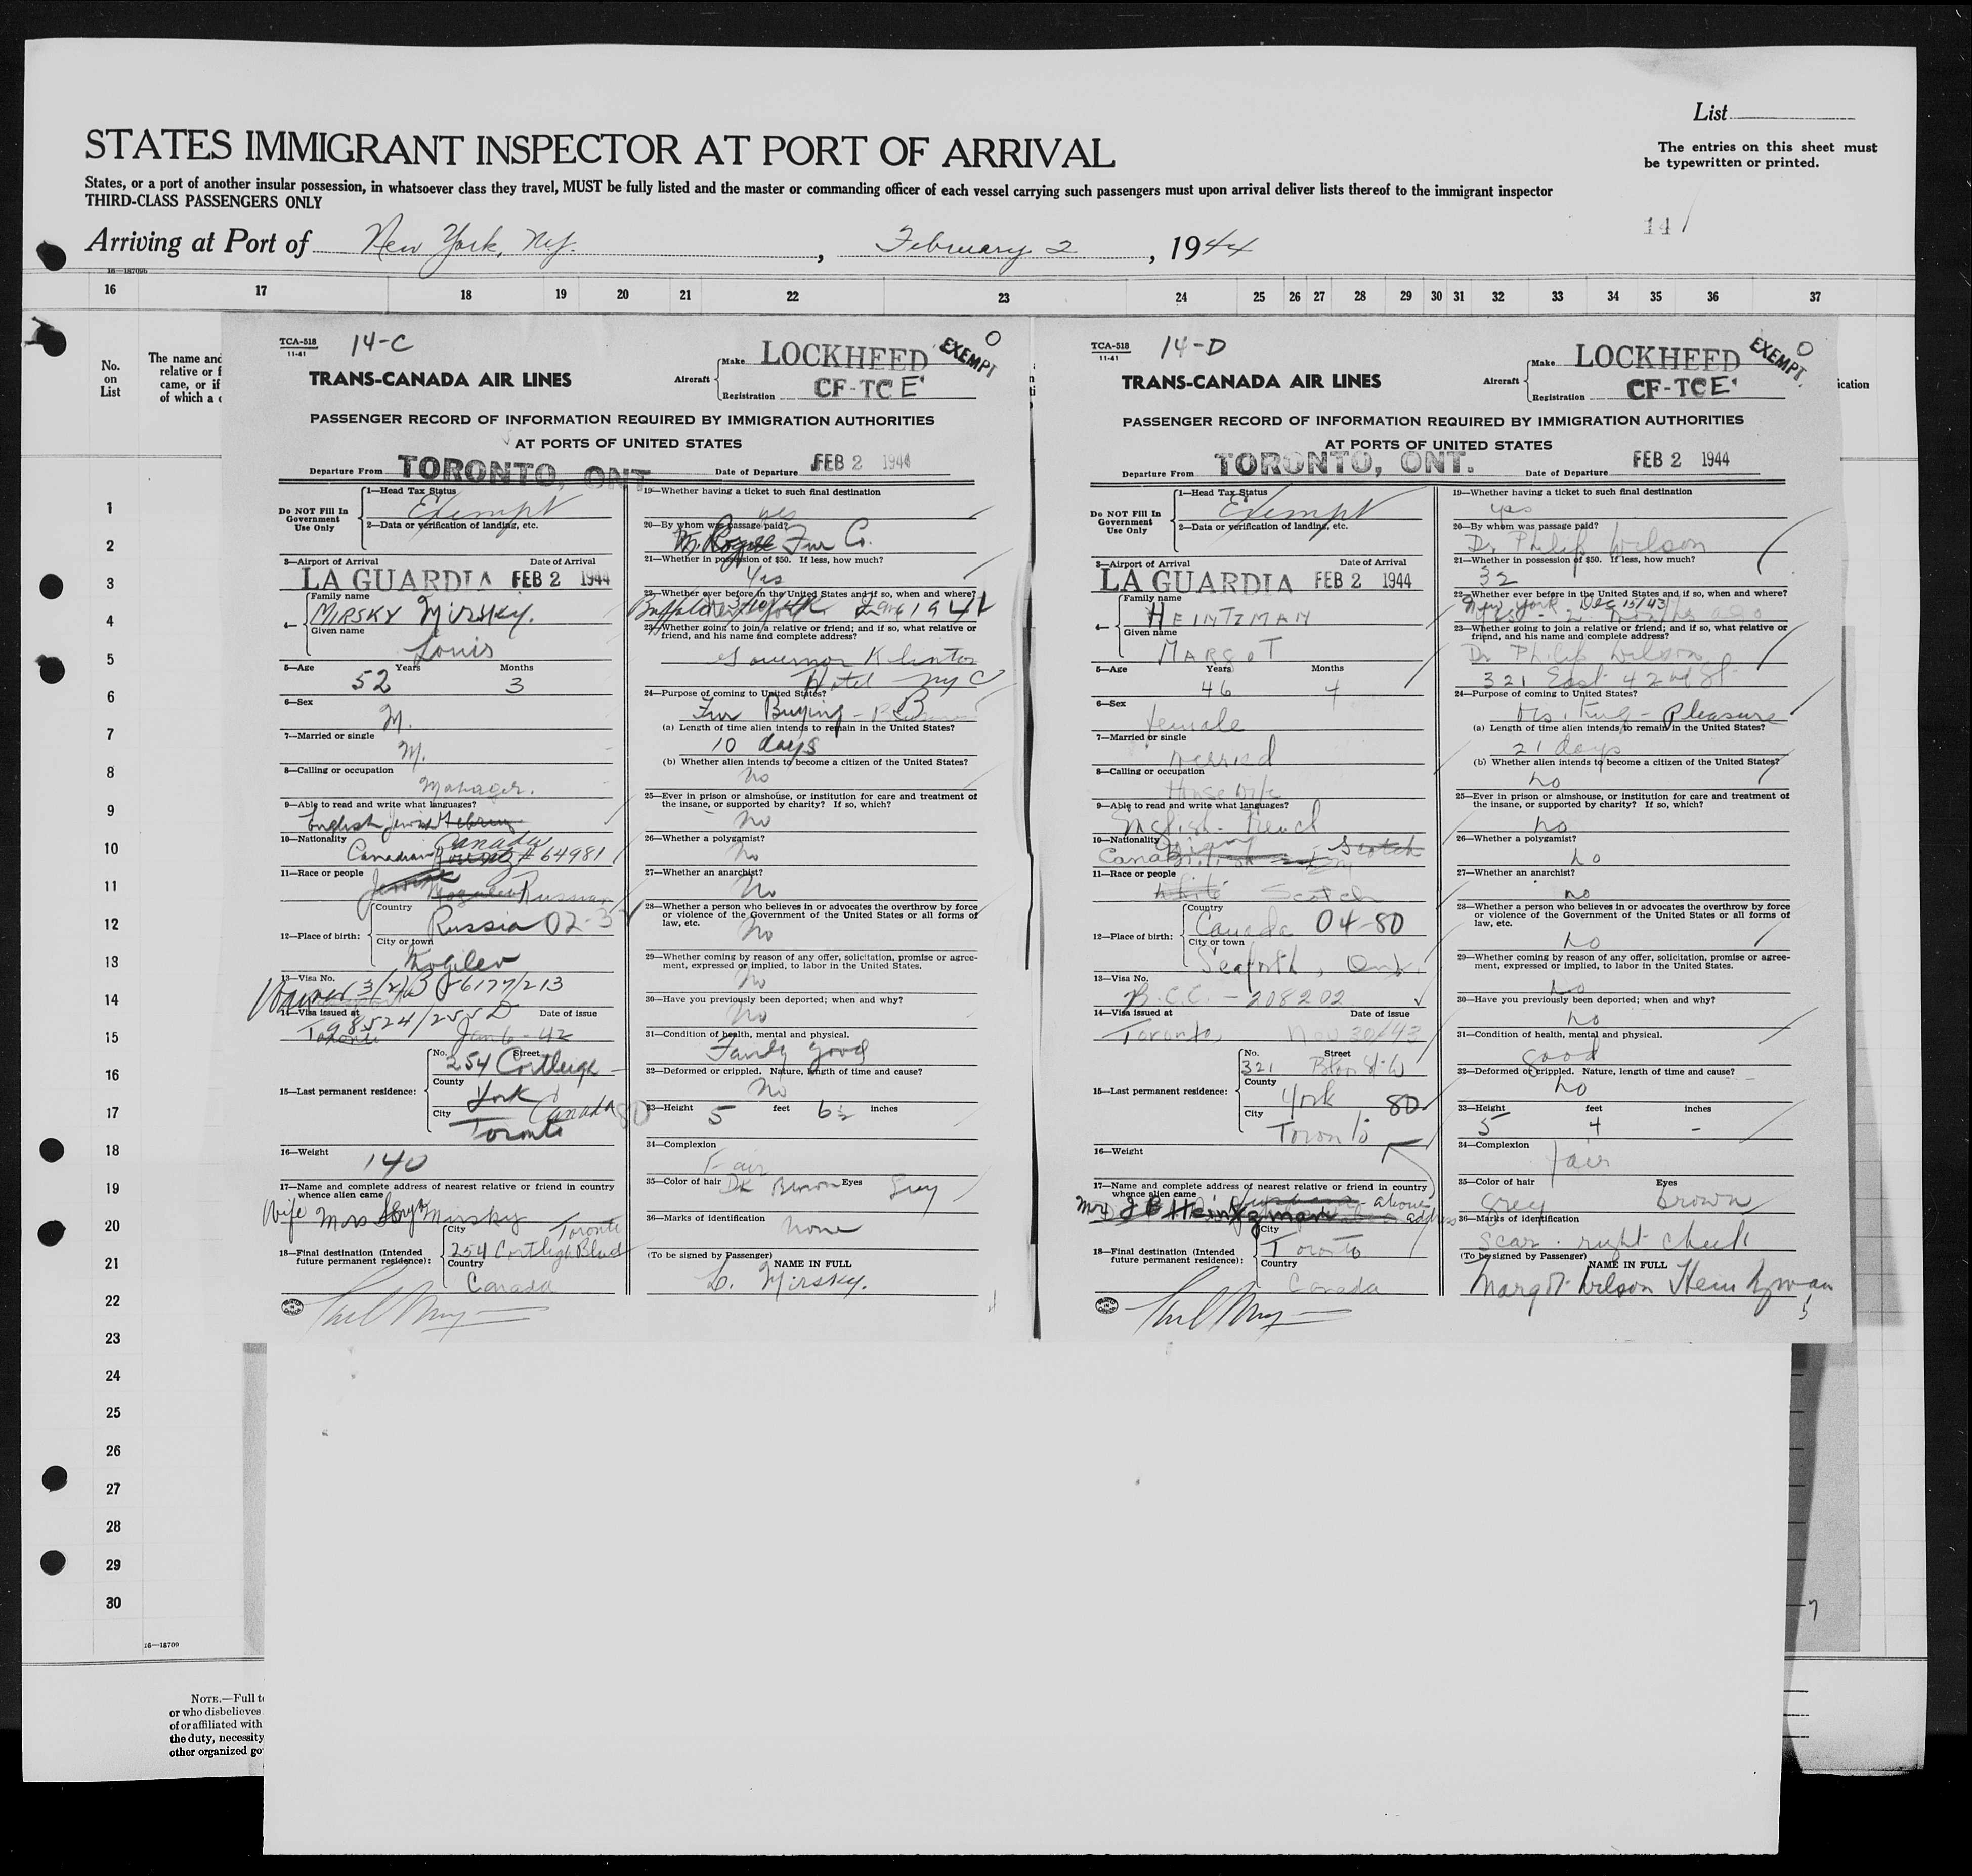 List
The entries on this sheet must
be typewritten or printed.
STATES IMMIGRANT INSPECTOR AT PORT OF ARRIVAL
States, or a port of another insular possession, in whatsoever class they travel, MUST be fully listed and the master or commanding officer of each vessel carrying such passengers must upon arrival deliver lists thereof to the immigrant inspector
THIRD-CLASS PASSENGERS ONLY
14
Arriving at Port of New York, N.Y., February 2, 1944
16—18709b
16 17 18 19 20 21 22 23 24 25 26 27 28 29 30 31 32 33 34 35 36 37
No.
on
List
The name and
relative or f
came, or if
of which a c
ication
1
2
3
4
5
6
7
8
9
10
11
12
13
14
15
16
17
18
19
20
21
22
23
24
25
26
27
28
29
30
16—18709
NOTE.—Full t
or who disbelieves
of or affiliated with
the duty, necessity
other organized go
TCA-518
11-41
14-C
EXEMPT
O
TRANS-CANADA AIR LINES
Aircraft
Make LOCKHEED
Registration CF-TCE
PASSENGER RECORD OF INFORMATION REQUIRED BY IMMIGRATION AUTHORITIES
AT PORTS OF UNITED STATES
Departure From TORONTO, ONT
Date of Departure FEB 2 1944
Do NOT Fill In
Government
Use Only
1—Head Tax Status
Exempt
2—Data or verification of landing, etc.
3—Airport of Arrival Date of Arrival
LA GUARDIA FEB 2 1944
4—
Family name
MIRSKY Mirsky.
Given name
Louis
5—Age Years Months
52 3
6—Sex
M.
7—Married or single
M.
8—Calling or occupation
Manager.
9—Able to read and write what languages?
English Jewish Hebrew
10—Nationality
Canada
Canadian # 64981
11—Race or people
Jewish Russian
12—Place of birth:
Country
Russia 02-3
City or town
Mogilev
13—Visa No.
3/2/B 6177/213
14—Visa issued at Date of issue
98524/255 D
Toronto Jan 6-42
15—Last permanent residence:
No. Street
254 Cortleigh
County
York
City Canada 80
Toronto
16—Weight
140
17—Name and complete address of nearest relative or friend in country
whence alien came
Wife Mrs Mirsky
18—Final destination (Intended
future permanent residence):
City Toronto
254 Cortleigh Blvd
Country
Canada
19—Whether having a ticket to such final destination
yes
20—By whom was passage paid?
Fur Co.
21—Whether in possession of $50. If less, how much?
Yes
22—Whether ever before in the United States and if so, when and where?
Buffalo 1942
23—Whether going to join a relative or friend; and if so, what relative or
friend, and his name and complete address?
Governor Klinton
Hotel NYC
24—Purpose of coming to United States?
Fur Buying - B
(a) Length of time alien intends to remain in the United States?
10 days
(b) Whether alien intends to become a citizen of the United States?
no
25—Ever in prison or almshouse, or institution for care and treatment of
the insane, or supported by charity? If so, which?
no
26—Whether a polygamist?
no
27—Whether an anarchist?
No
28—Whether a person who believes in or advocates the overthrow by force
or violence of the Government of the United States or all forms of
law, etc.
No
29—Whether coming by reason of any offer, solicitation, promise or agree-
ment, expressed or implied, to labor in the United States.
no
30—Have you previously been deported; when and why?
No
31—Condition of health, mental and physical.
Fairly good
32—Deformed or crippled. Nature, length of time and cause?
No
33—Height 5 feet 6½ inches
34—Complexion
Fair
35—Color of hair Dk Brown Eyes Grey
36—Marks of identification
none
(To be signed by Passenger) NAME IN FULL
L. Mirsky.
TCA-518
11-41
14-D
EXEMPT
O
TRANS-CANADA AIR LINES
Aircraft
Make LOCKHEED
Registration CF-TCE
PASSENGER RECORD OF INFORMATION REQUIRED BY IMMIGRATION AUTHORITIES
AT PORTS OF UNITED STATES
Departure From TORONTO, ONT.
Date of Departure FEB 2 1944
Do NOT Fill In
Government
Use Only
1—Head Tax Status
Exempt
2—Data or verification of landing, etc.
3—Airport of Arrival Date of Arrival
LA GUARDIA FEB 2 1944
4—
Family name
HEINTZMAN
Given name
MARGOT
5—Age Years Months
46 4
6—Sex
female
7—Married or single
married
8—Calling or occupation
Housewife
9—Able to read and write what languages?
English - French
10—Nationality
Scotch
11—Race or people
White Scotch
12—Place of birth:
Country
Canada 04-80
City or town
Seaforth, Ont.
13—Visa No.
B.C.C. - 208202
14—Visa issued at Date of issue
Toronto, Nov 30/43
15—Last permanent residence:
No. Street
321 Bloor St. W
County
York 80
City
Toronto
16—Weight
17—Name and complete address of nearest relative or friend in country
whence alien came
Heintzman above address
18—Final destination (Intended
future permanent residence):
City
Toronto
Country
Canada
19—Whether having a ticket to such final destination
yes
20—By whom was passage paid?
Dr Philip Wilson
21—Whether in possession of $50. If less, how much?
32
22—Whether ever before in the United States and if so, when and where?
New York Dec 15/43
23—Whether going to join a relative or friend; and if so, what relative or
friend, and his name and complete address?
Dr Philip Wilson
321 East 42nd St.
24—Purpose of coming to United States?
Visiting - Pleasure
(a) Length of time alien intends to remain in the United States?
21 days
(b) Whether alien intends to become a citizen of the United States?
no
25—Ever in prison or almshouse, or institution for care and treatment of
the insane, or supported by charity? If so, which?
no
26—Whether a polygamist?
no
27—Whether an anarchist?
no
28—Whether a person who believes in or advocates the overthrow by force
or violence of the Government of the United States or all forms of
law, etc.
no
29—Whether coming by reason of any offer, solicitation, promise or agree-
ment, expressed or implied, to labor in the United States.
no
30—Have you previously been deported; when and why?
no
31—Condition of health, mental and physical.
good
32—Deformed or crippled. Nature, length of time and cause?
no
33—Height feet inches
5 4 -
34—Complexion
fair
35—Color of hair Eyes
grey brown
36—Marks of identification
scar . right cheek
(To be signed by Passenger) NAME IN FULL
Margot Wilson Heintzman